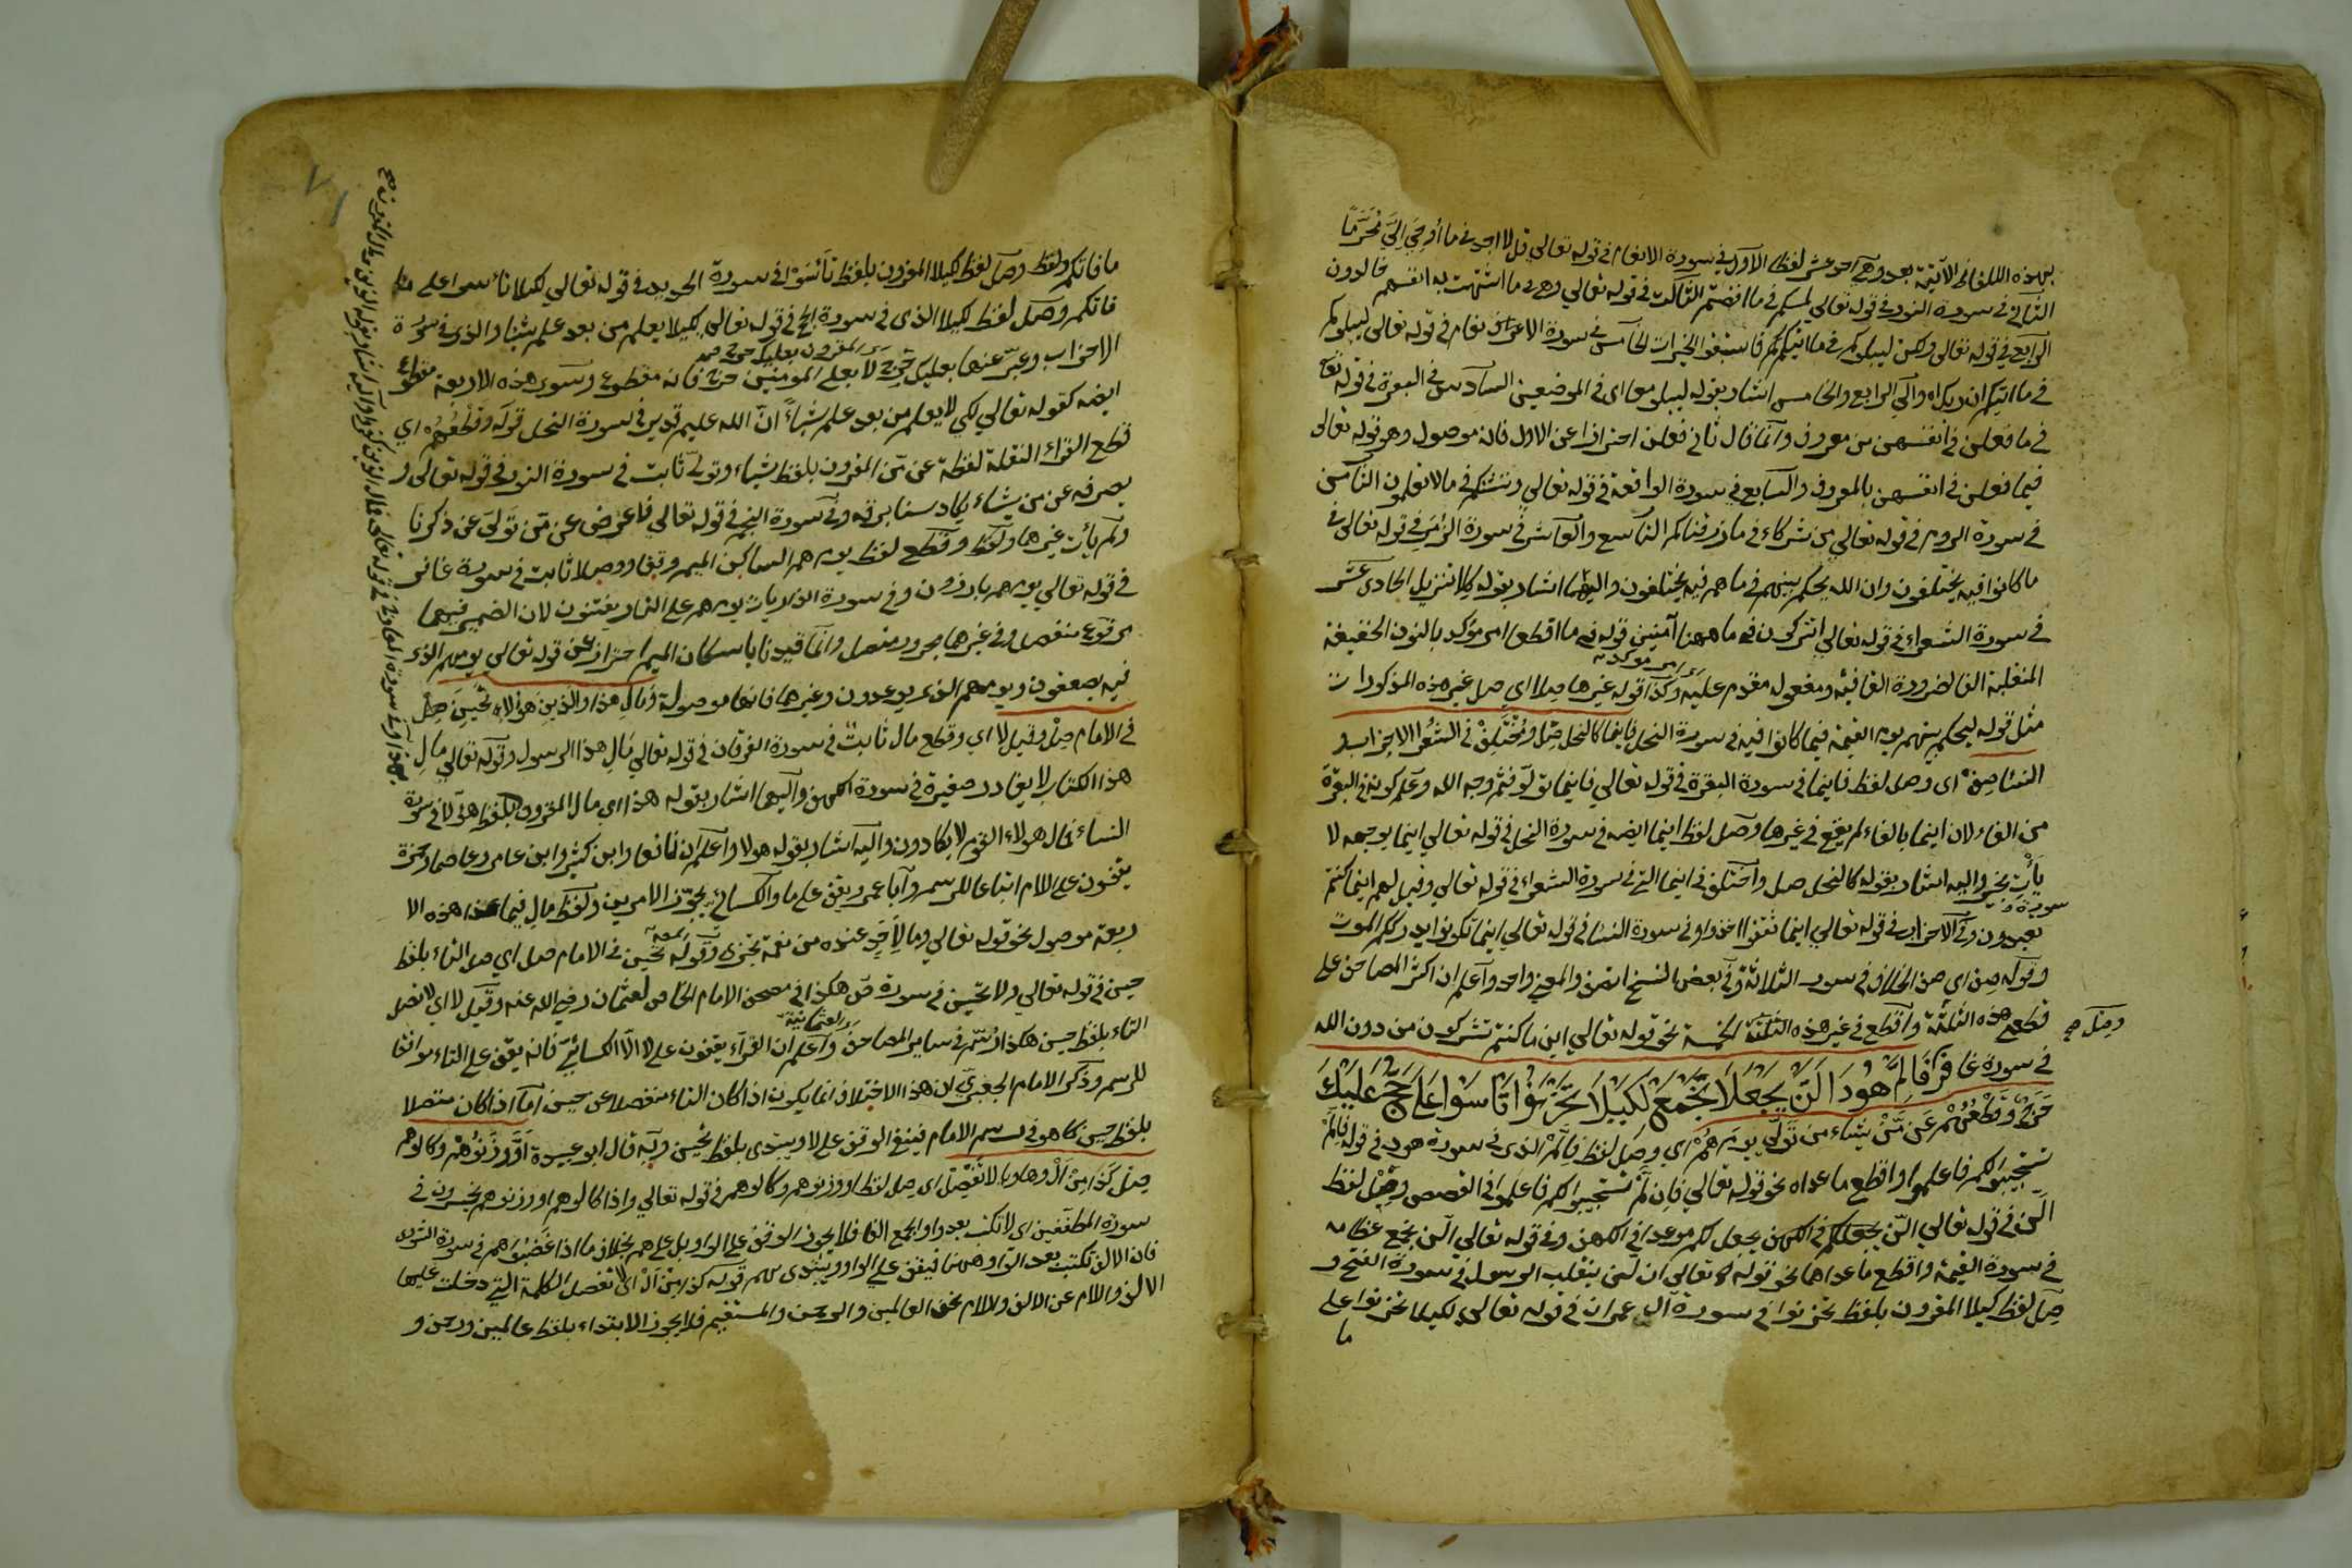 بهذه اللفاظ الآتية بعد وهي احد عشر لفظا الاول في سورة الانعام في قوله تعالى قل لا اجد في ما أوحي إلي محرما
الثاني في سورة النور في قوله تعالى لمسكم في ما افضتم الثالث في قوله تعالى وهم في ما اشتهت به انفسهم خالدون
الرابع في قوله تعالى ولكن ليبلوكم في ما اتيكم فاستبقوا الخيرات الخامس في سورة الاعراف نعام في قوله تعالى ليبلوكم
في ما اتيكم ان ربك اه والى الرابع والخامس اشار بقوله ليبلو معا اى في الموضعين السادس في البقرة في قوله تعا
في ما فعلن في انفسهن من معروف وانما قال ثاني فعلن احترازا عن الاول فانه موصول وهو قوله تعالى
فيما فعلن في انفسهن بالمعروف والسابع في سورة الواقعة في قوله تعالى وننشئكم في مالا تعلمون الثامن
في سورة الروم في قوله تعالى من شركاء في ما رزقناكم التاسع والعاشر في سورة الزمر في قوله تعالى في
ما كانوا فيه يختلفون وان الله يحكم بينهم في ما هم فيه يختلفون واليهما اشار بقوله كلا تنزيل الحادى عشر
في سورة الشعراء في قوله تعالى اتتركون في ما ههنا آمنين قوله في ما اقطعا امر مؤكد بالنون الخفيفة
المنقلبة الفا لضرورة القافية ومفعوله مقدم عليه وكذا قوله غيرها صلا اي صل غير هذه المذكورات
مثل قوله ليحكم بينهم يوم القيمة فيما كانوا فيه في سورة النحل فاينما كالنحل صل ومختلف في الشعرا الاحزاب و
النسا صف اى وصل لفظ فاينما في سورة البقرة في قوله تعالى فاينما تولوا فثم وجه الله وعلم كونه في البقرة
من الفاء لان اينما بالفاء لم يقع في غيرها وصل لفظ اينما ايضه في سورة النحل في قوله تعالى اينما يوجهه لا
يأت بخير واليه اشار بقوله كالنحل صل واختلف في اينما التي في سورة الشعراء في قوله تعالى وقيل لهم اينما كنتم
تعبدون وفي سورة الاحزاب في قوله تعالى اينما ثقفوا اخذوا وفي سورة النسا في قوله تعالى اينما تكونوا يدرككم الموت
وقوله صف اى صف الخلاف في سور الثلاثة وفي بعض النسخ اتصف والمعنى واحد واعلم ان اكثر المصاحف على
قطع هذه الثلثة واقطع في غير هذه الثلثة الخمسة نحو قوله تعالى اين ما كنتم تشركون من دون الله
وصل صح
في سورة غافر فإلم هود الن يجعلا نجمع لكيلا تحزنوا تأسوا على حج عليك
حرج وقطعهم عن من يشاء من تولى يوم هم اي وصل لفظ فإلم الذى في سورة هود في قوله فإلم
يستجيبوا لكم فاعلموا واقطع ما عداه نحو قوله تعالى فان لم يستجيبوا لكم فاعلموا في القصص وصل لفظ
الن في قوله تعالى الن نجعل لكم في الكهف نجعل لكم موعدا في الكهف وفي قوله تعالى الن نجمع عظامه
في سورة القيمة واقطع ما عداها نحو قوله تعالى ان لن ينقلب الرسول في سورة الفتح و
صل لفظ كيلا المقرون بلفظ تحزنوا في سورة آل عمران في قوله تعالى لكيلا تحزنوا على
ما
ما فاتكم ولفظ وصل لفظ لكيلا المقرون بلفظ تأسوا في سورة الحديد في قوله تعالى لكيلا تأسوا على ما
فاتكم وصل لفظ لكيلا الذى في سورة الحج في قوله تعالى لكيلا يعلم من بعد علم شيئا والذى في سورة
الاحزاب وعبر عنها بعليك حرج لا بعلى المؤمنين حرج فانه مقطوع وسوى هذه الاربعة مقطوع
ايضه كقوله تعالى لكي لا يعلم من بعد علم شيئا ان الله عليم قدير في سورة النحل قوله وقطعهم اي
قطع القراء النقلة لفظة عن من المقرون بلفظ يشاء وتولى ثابت في سورة النور في قوله تعالى و
يصرفه عن من يشاء يكاد سنا برقه وفي سورة النجم في قوله تعالى فاعرض عن من تولى عن ذكرنا
ولم يأت غيرها ولفظ وقطع لفظ يوم هم الساكن الميم وقفا ووصلا ثابت في سورة غافر
في قوله تعالى يوم هم بارزون وفي سورة الذاريات يوم هم على النار يفتنون لان الضمير فيهما
مرفوع منفصل وفي غيرها مجرور متصل وانما قيدنا باسكان الميم احتراز عن قوله تعالى يومهم الذى
فيه يصعقون ويومهم الذى يوعدون وغيرها فانها موصولة ومال هذا والذين هؤلاء تحين صل
في الامام صل وقيل لا اي وقطع مال ثابت في سورة الفرقان في قوله تعالى مال هذا الرسول وقوله تعالى مال
هذا الكتاب لا يغادر صغيرة في سورة الكهف واليهما اشار بقوله هذا اي مال المقرون بلفظ هؤلا في سورة
النساء فمال هولاء القوم لا يكادون واليه اشار بقوله هولا واعلم ان نافعا وابن كثير وابن عامر وعاصما وحمزة
يقفون على اللام اتباعا للرسم وابا عمرو يقف على ما والكسائي يجوز الامرين ولفظ مال فيما عدا هذه الا
ربعة موصول نحو قوله تعالى وما لأحد عنده من نعمة تجزى وقوله تحين في الامام صل اي صل التاء بلفظ
حين في قوله تعالى ولا تحين في سورة ص هكذا في مصحف الامام الخاص لعثمان رضي الله عنه وقيل لا اي لا تصل
التاء بلفظ حين هكذا رسم في ساير المصاحف العثمانية واعلم ان القراء يقفون على لا الا الكسائي فانه يقف على التاء موافقا
للرسم وذكر الامام الجعبري لان هذا الاختلاف انما يكون اذا كان التاء منفصلا عن حين اما اذا كان متصلا
بلفظ حين كما هو في رسم الامام فينبغي الوقف على لا ويبتدى بلفظ تحين وبه قال ابو عبيدة او وزنوهم وكالوهم
صل كذا من ال وها ويا لا تفصل اى صل لفظ او وزنوهم وكالوهم في قوله تعالى واذا كالوهم او وزنوهم يخسرون في
سورة المطففين اى لا تكتب بعد واو الجمع الفا فلا يجوز الوقف على الواو بل على هم بخلاف ما اذا غضبوا هم في سورة الشورى
فان الالف تكتب بعد الواو ههنا فيقف على الواو ويبتدى بهم قوله كذا من ال اى لا تفصل الكلمة التي دخلت عليها
الالف واللام عن الالف واللام نحو العالمين والرحمن والمستقيم فلا يجوز الابتداء بلفظ عالمين ورحمن و